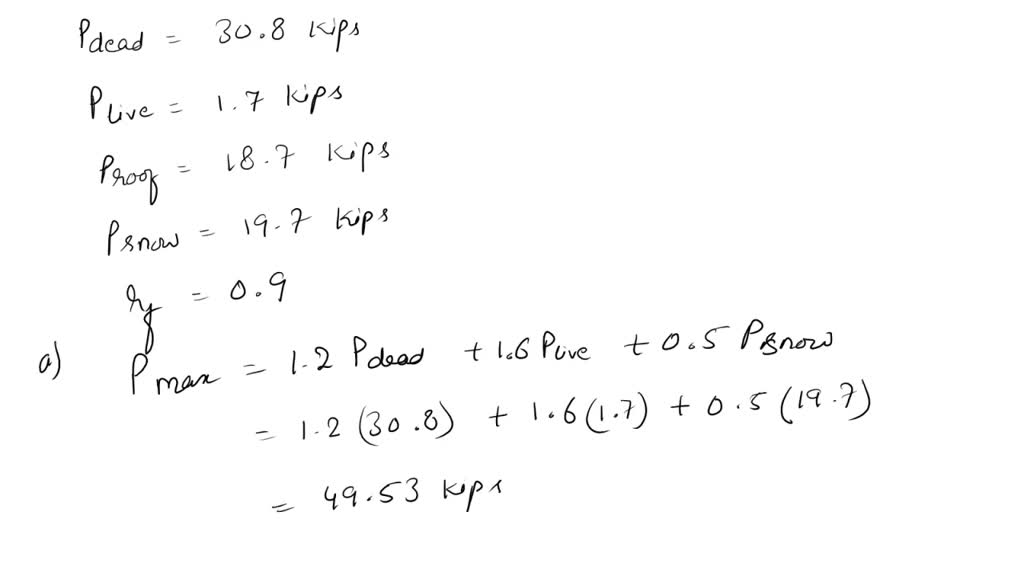 Pdead = 30.8 Kips
PLive = 1.7 Kips
Proof = 18.7 Kips
Psnow = 19.7 Kips
= 0.9
a) Pmax = 1.2 Pdead + 1.6 PLive + 0.5 Psnow
= 1.2 (30.8) + 1.6 (1.7) + 0.5 (19.7)
= 49.53 kips